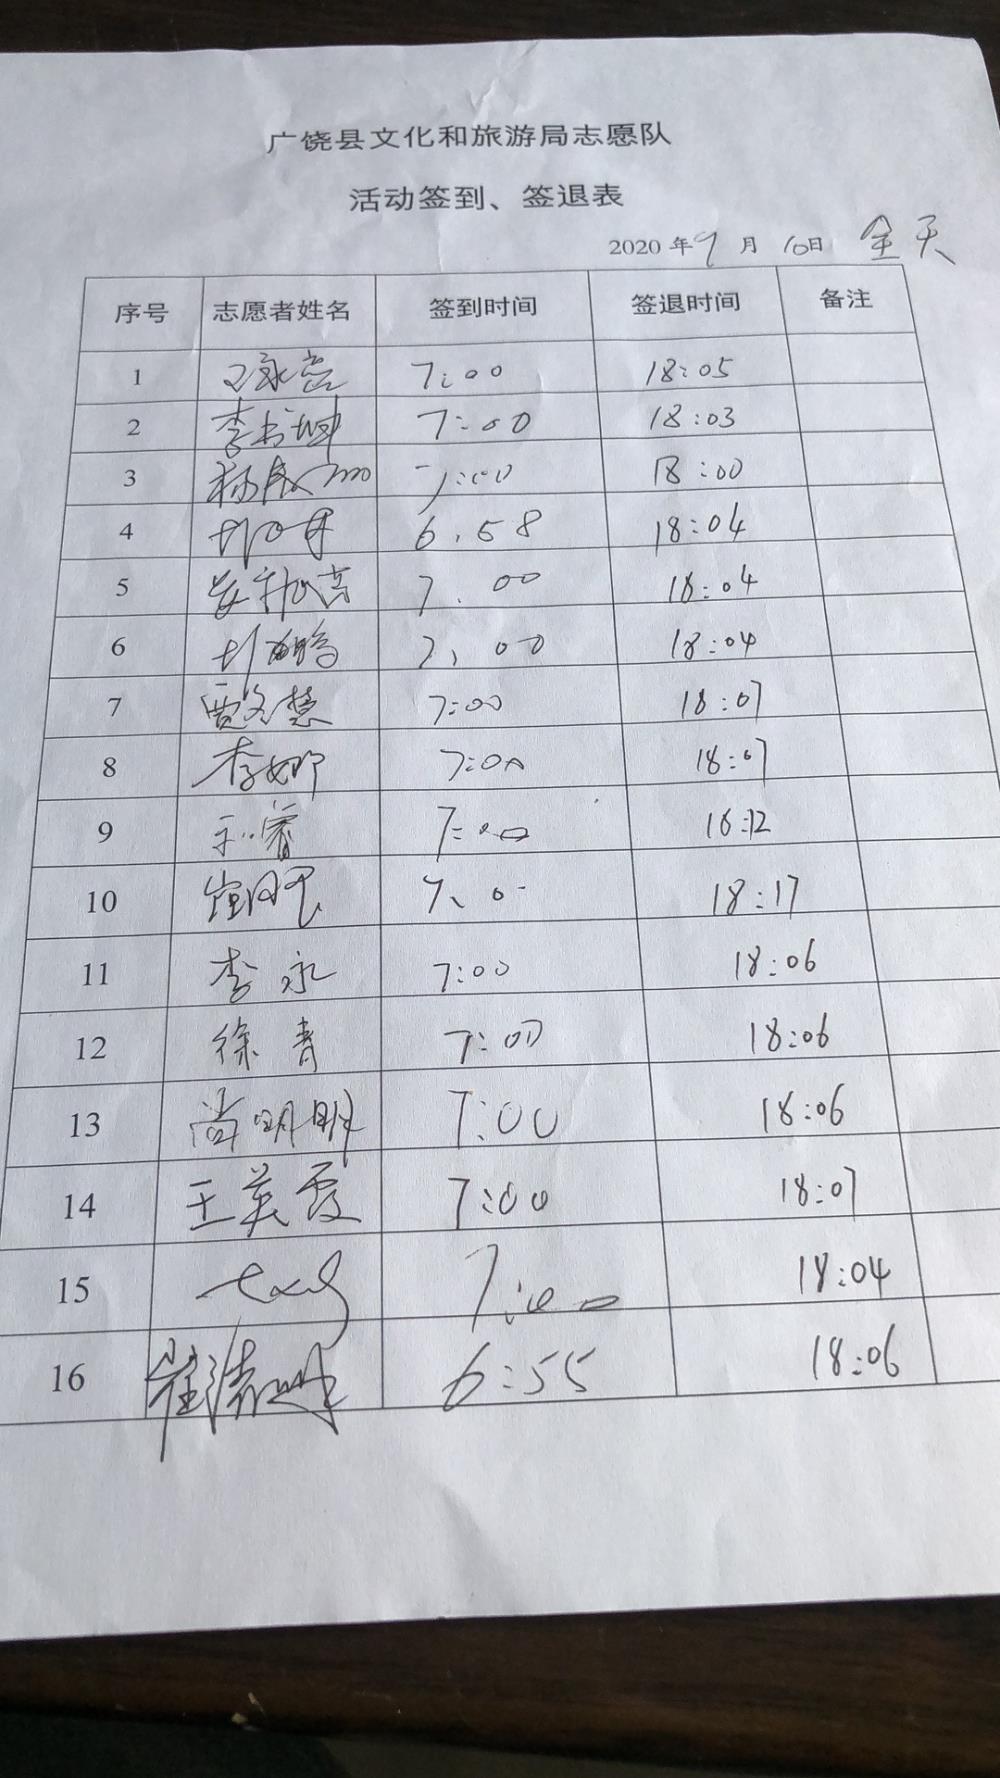 广饶县文化和旅游局志愿队
活动签到、签退表
2020 年 9 月 10日 全天
序号 志愿者姓名 签到时间 签退时间 备注
1 7:00 18:05
2 李书坤 7:00 18:03
3 7:00 18:00
4 6.58 18:04
5 7.00 18:04
6 7.00 18:04
7 贾冬慧 7:00 18:07
8 李娜 7:00 18:07
9 7:00 18:12
10 18:17
11 李永 7:00 18:06
12 徐青 7:00 18:06
13 尚明明 7:00 18:06
14 王英霞 7:00 18:07
15 7:00 18:04
16 6:55 18:06